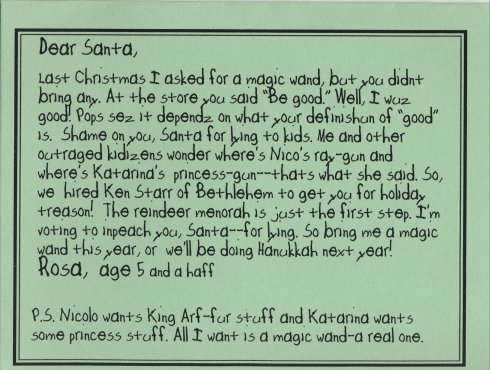 Dear Santa,
Last Christmas I asked for a magic wand, but you didnt
bring any. At the store you said "Be good." Well, I wuz
good! Pops sez it dependz on what your definishun of "good"
is. Shame on you, Santa for lying to kids. Me and other
outraged kidizens wonder where's Nico's ray-gun and
where's Katarina's princess-gun--thats what she said. So,
we hired Ken Starr of Bethlehem to get you for holiday
treason! The reindeer menorah is just the first step. I'm
voting to inpeach you, Santa--for lying. So bring me a magic
wand this year, or we'll be doing Hanukkah next year!
Rosa, age 5 and a haff
P.S. Nicolo wants King Arf-fur stuff and Katarina wants
some princess stuff. All I want is a magic wand-a real one.